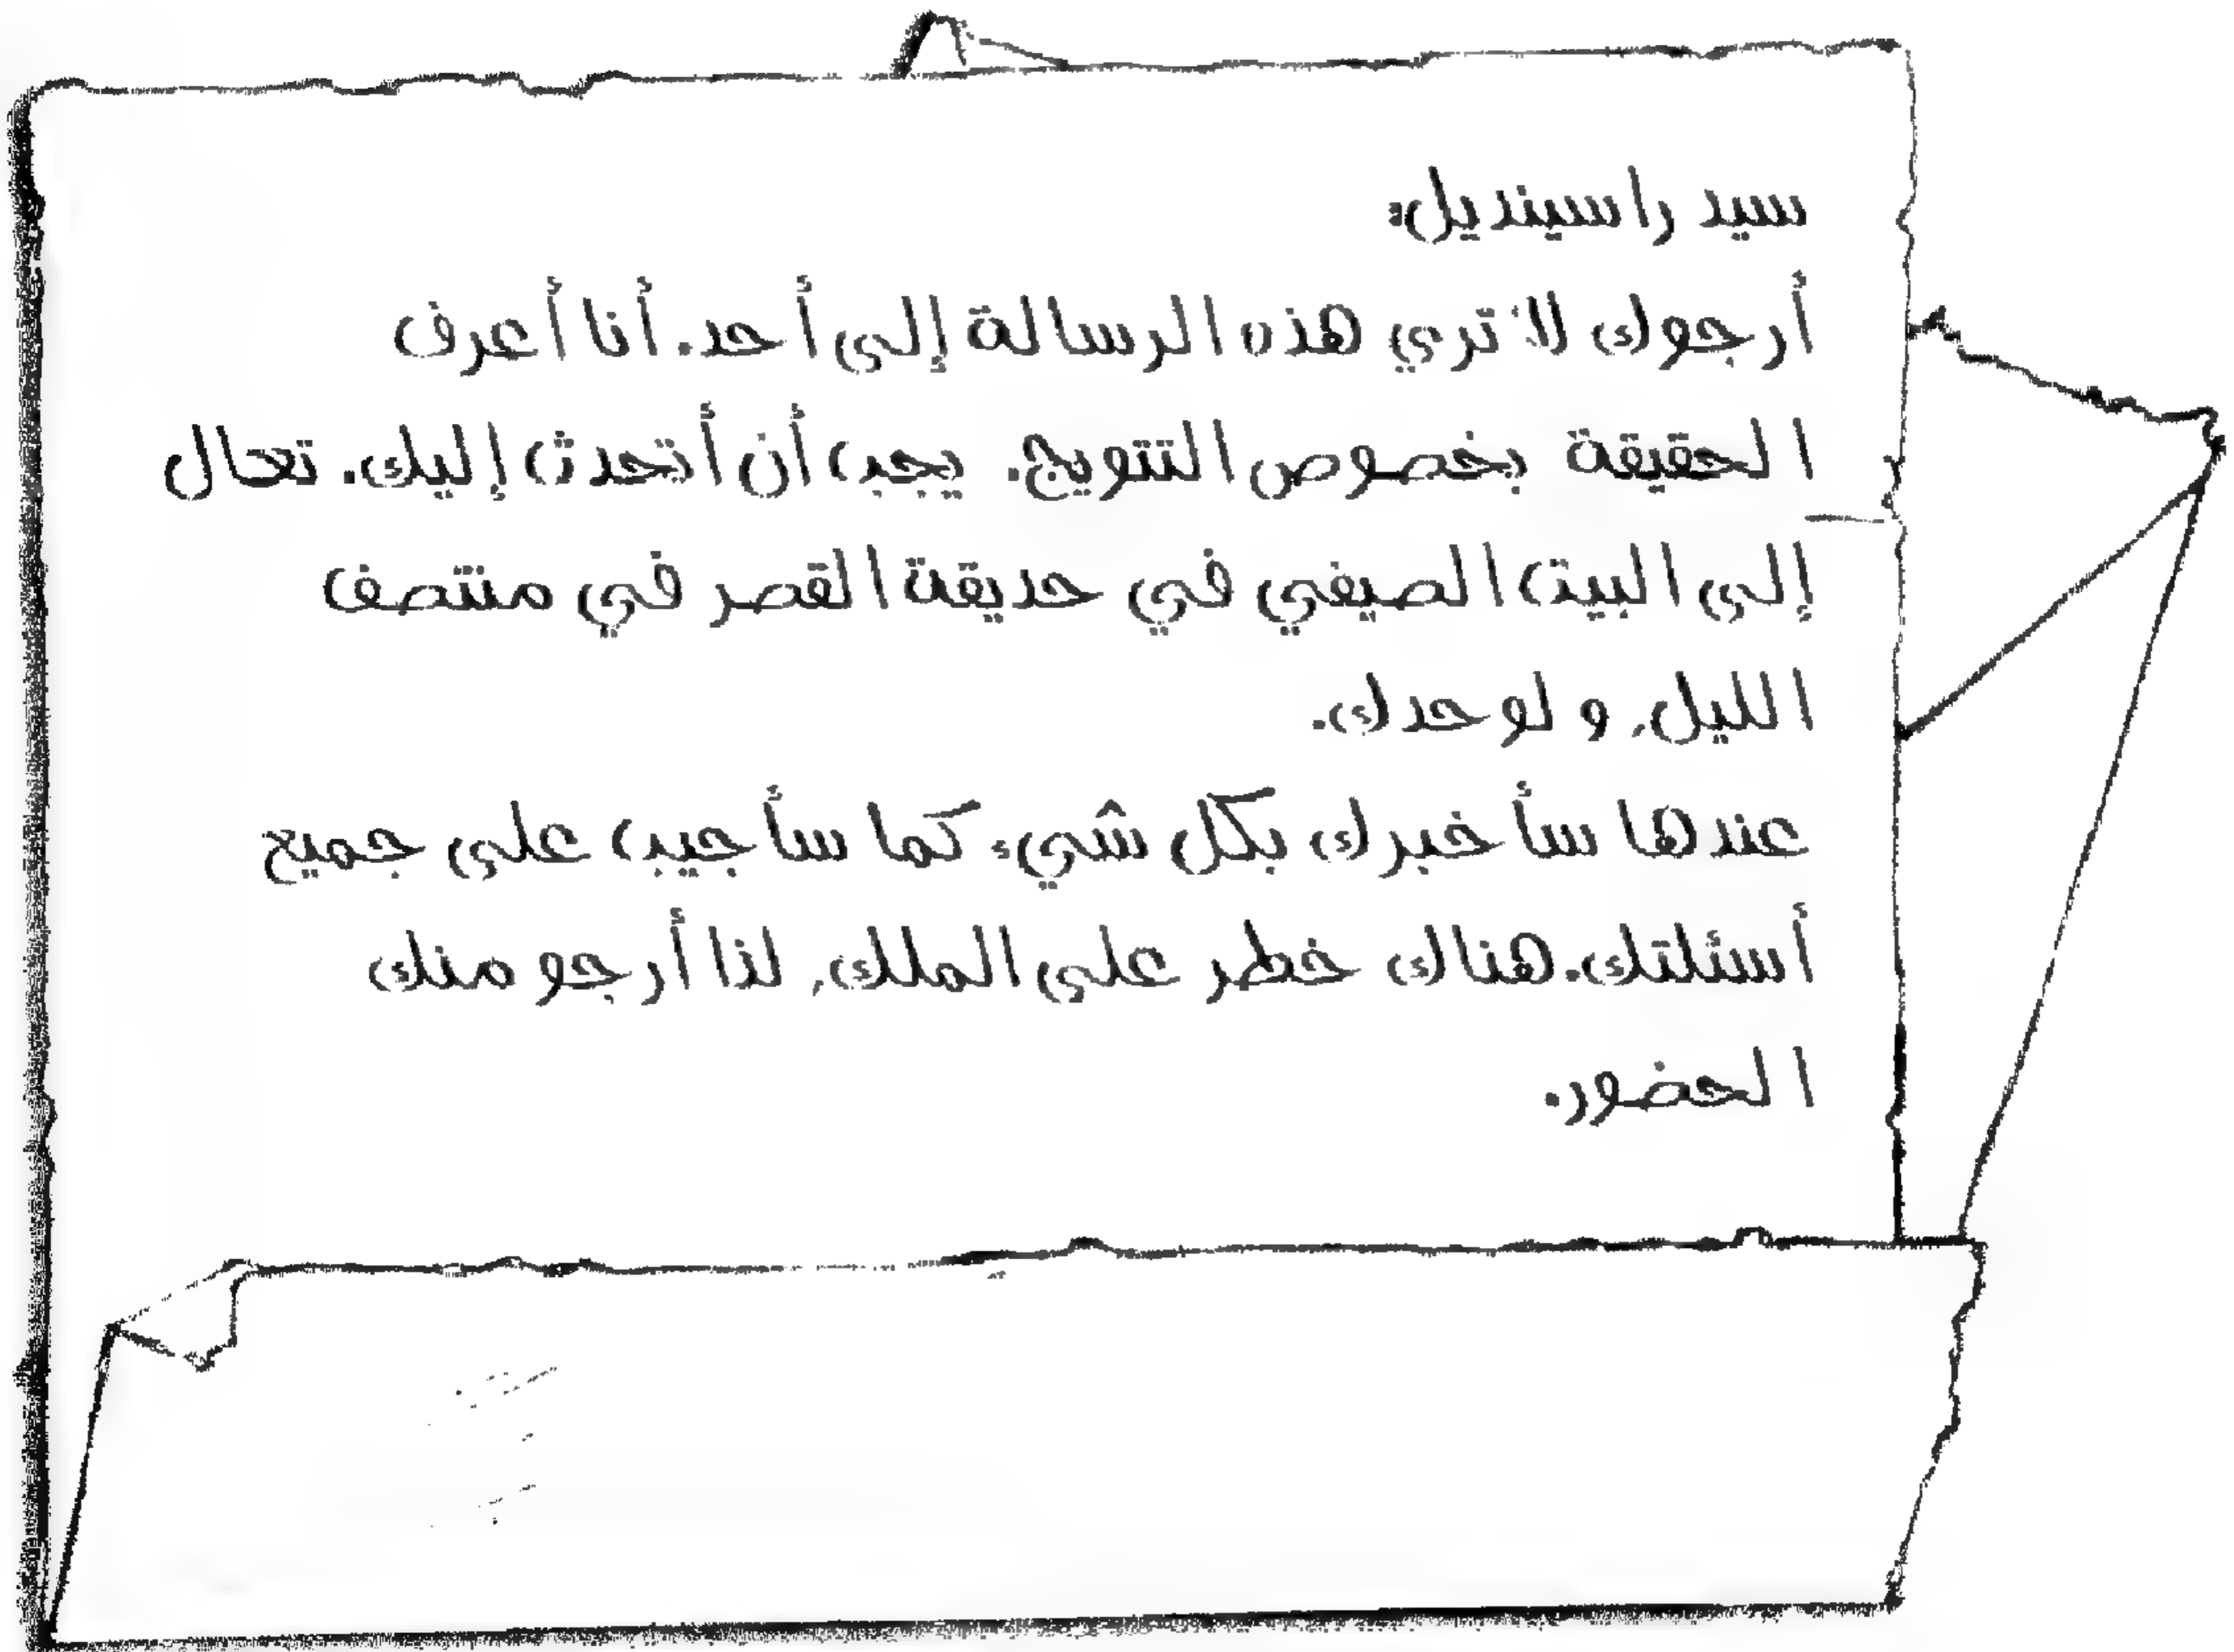 سيد راسينديل:
أرجوك لا تري هذه الرسالة إلى أحد. أنا أعرف
الحقيقة بخصوص التتويج. يجب أن أتحدث إليك. تعال
إلى البيت الصيفي في حديقة القصر في منتصف
الليل، و لوحدك.
عندها سأخبرك بكل شيء كما سأجيب على جميع
أسئلتك. هناك خطر على الملك، لذا أرجو منك
الحضور.